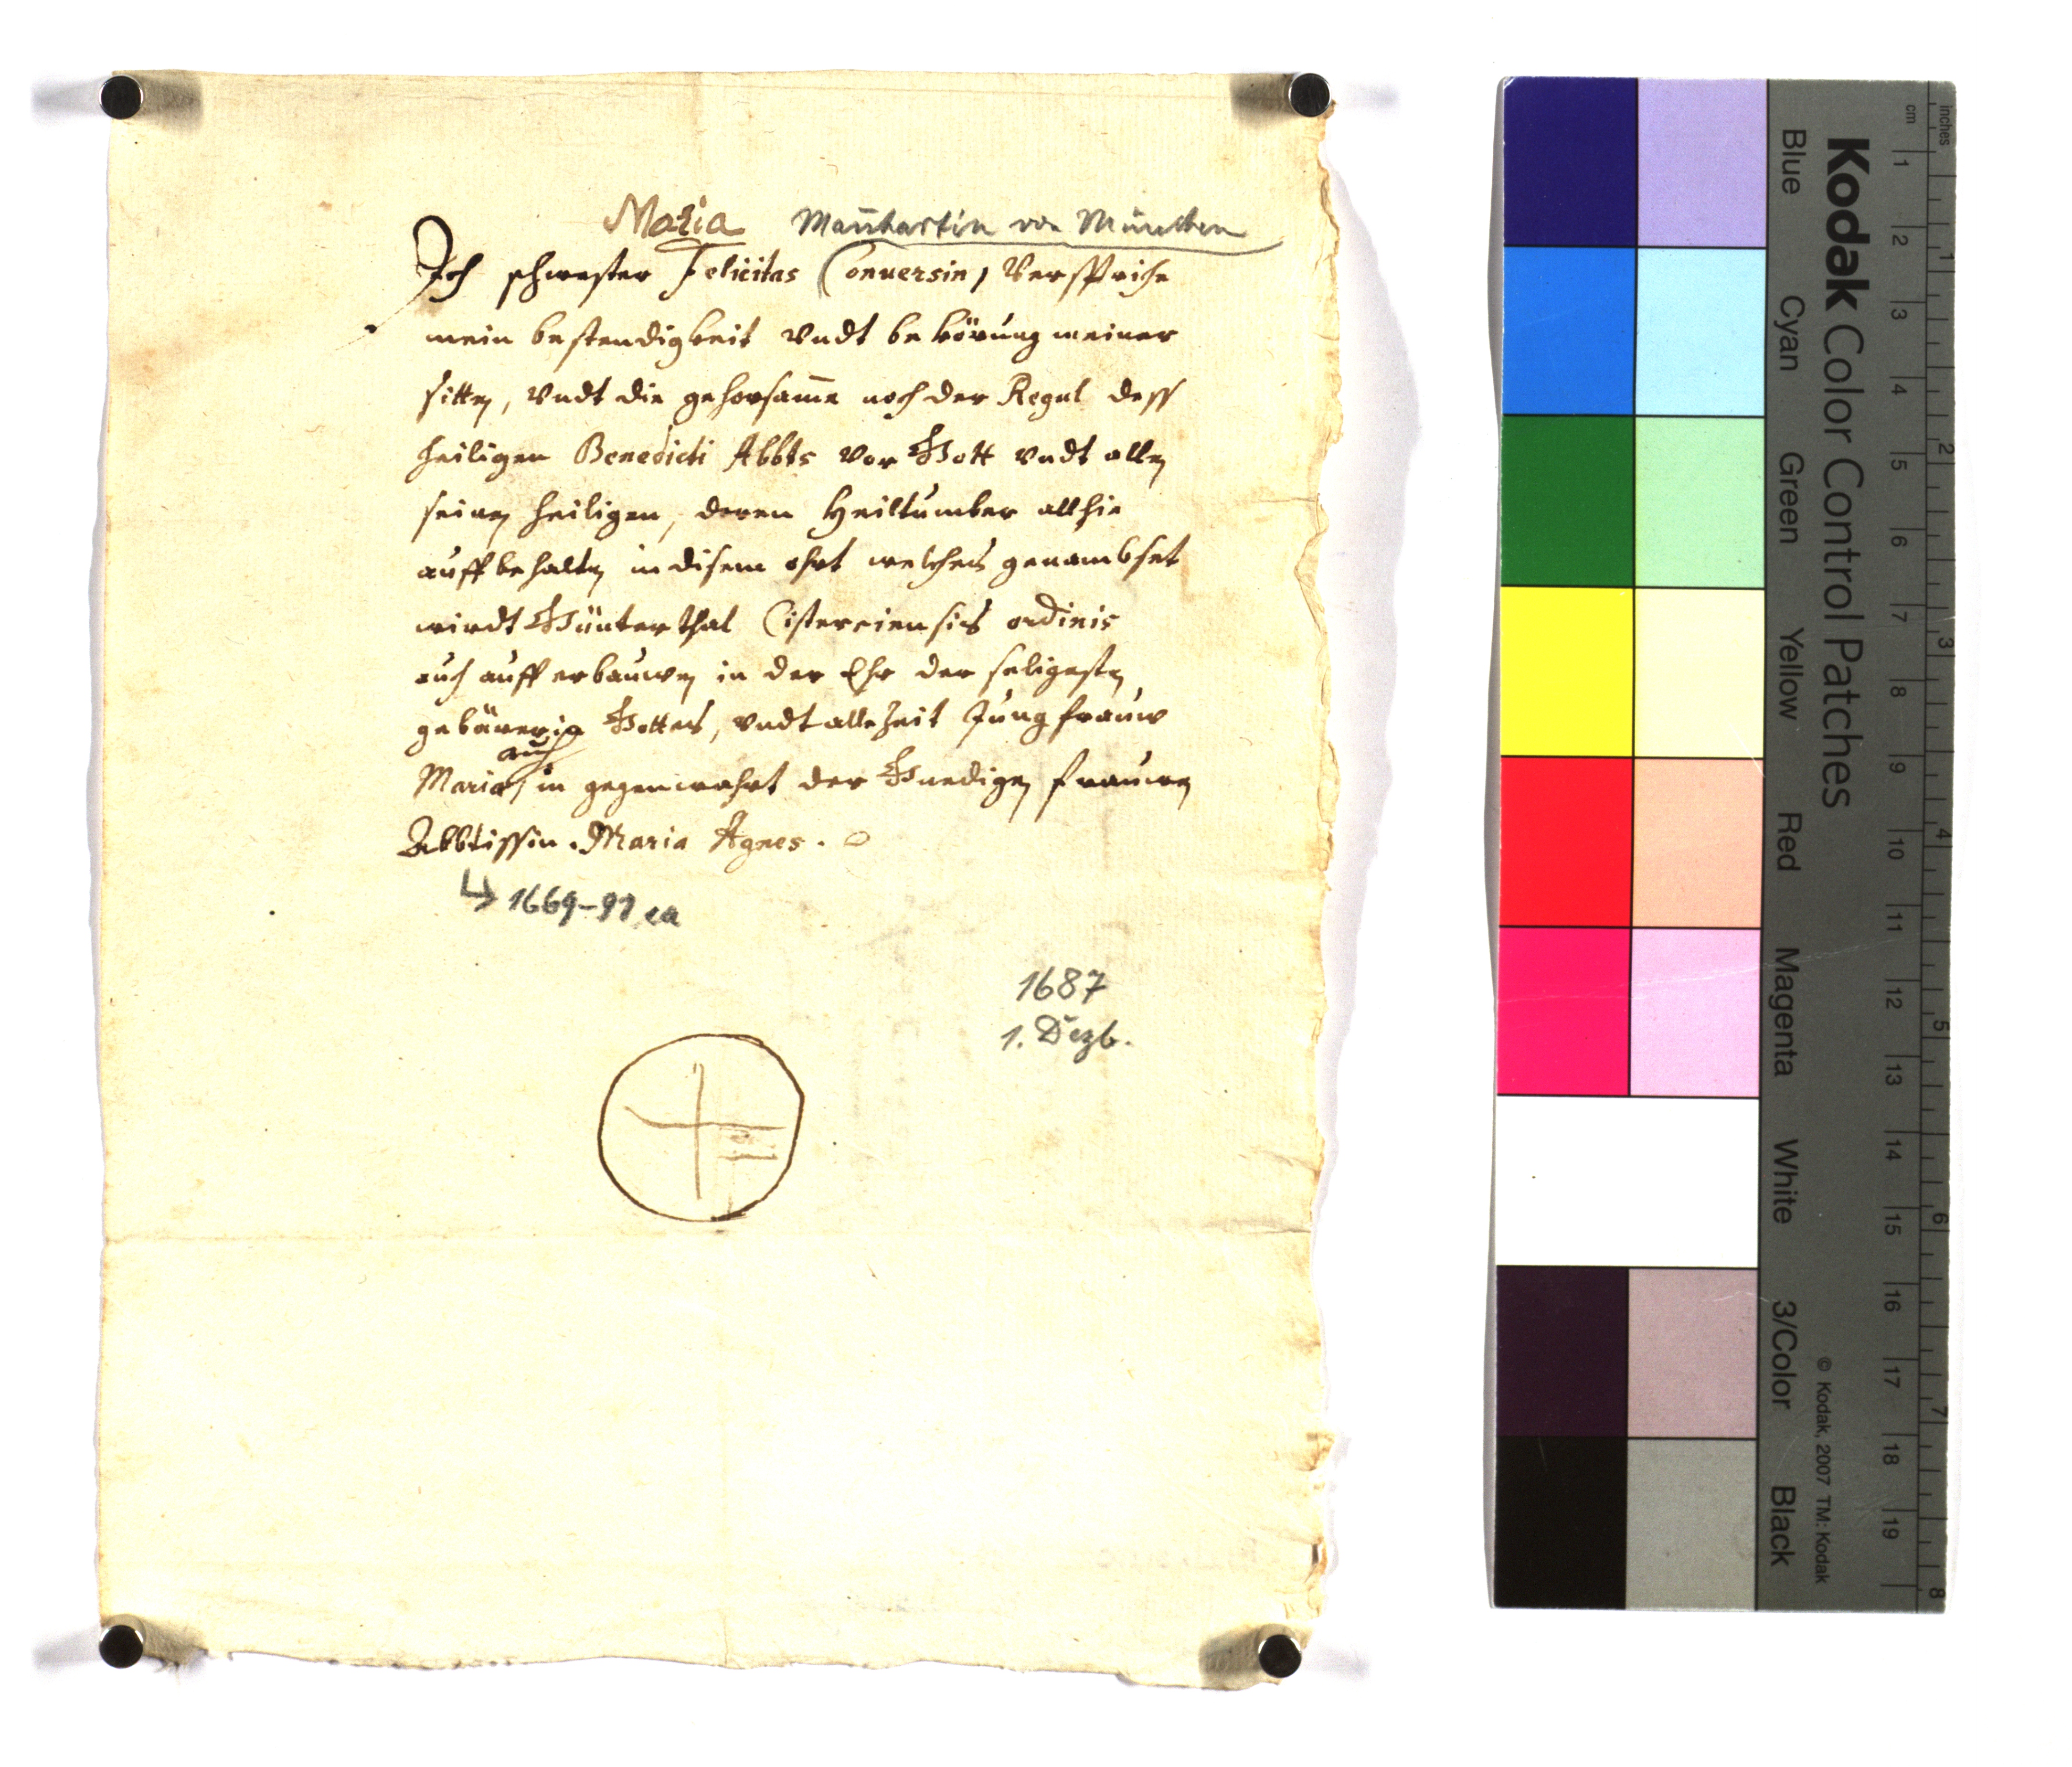 Maria Mañhartin von München
Ich schwester Felicitas Conuersin, Versprihe
mein bestendigkeit vndt bekörung meiner
sitten, vndt die gehorsam̄e noch der Regul dess
heiligen Benedicti Abbts vor Gott vndt allen
seinen heiligen, deren Heiltumber allhie
auffbehalten in disem ohrt welches genambset
wirdt Günterthal Cisterciensis ordinis
auch aufferbauwen in der Ehr der seligesten
gebärerin Gottes, vndt alle Zeit Jungfrauw
auch
Maria, in gegenwahrt der Gnedigen frauwen
Abbtissin. Maria Agnes.
↳ 1669-91 ca
1687
1. Dezb.
Kodak Color Control Patches
Blue Cyan Green Yellow Red Magenta White 3/Color Black
© Kodak, 2007 TM: Kodak
cm 1 2 3 4 5 6 7 8 9 10 11 12 13 14 15 16 17 18 19
inches 1 2 3 4 5 6 7 8